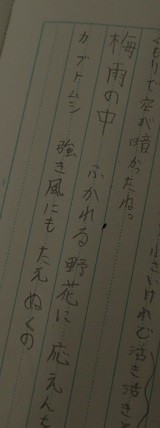 小さいけれど活き活きと
くもりで空が暗かったね。
梅雨の中 ふかれる野花に 応えんを
カブトムシ 強き風にも たえぬくの